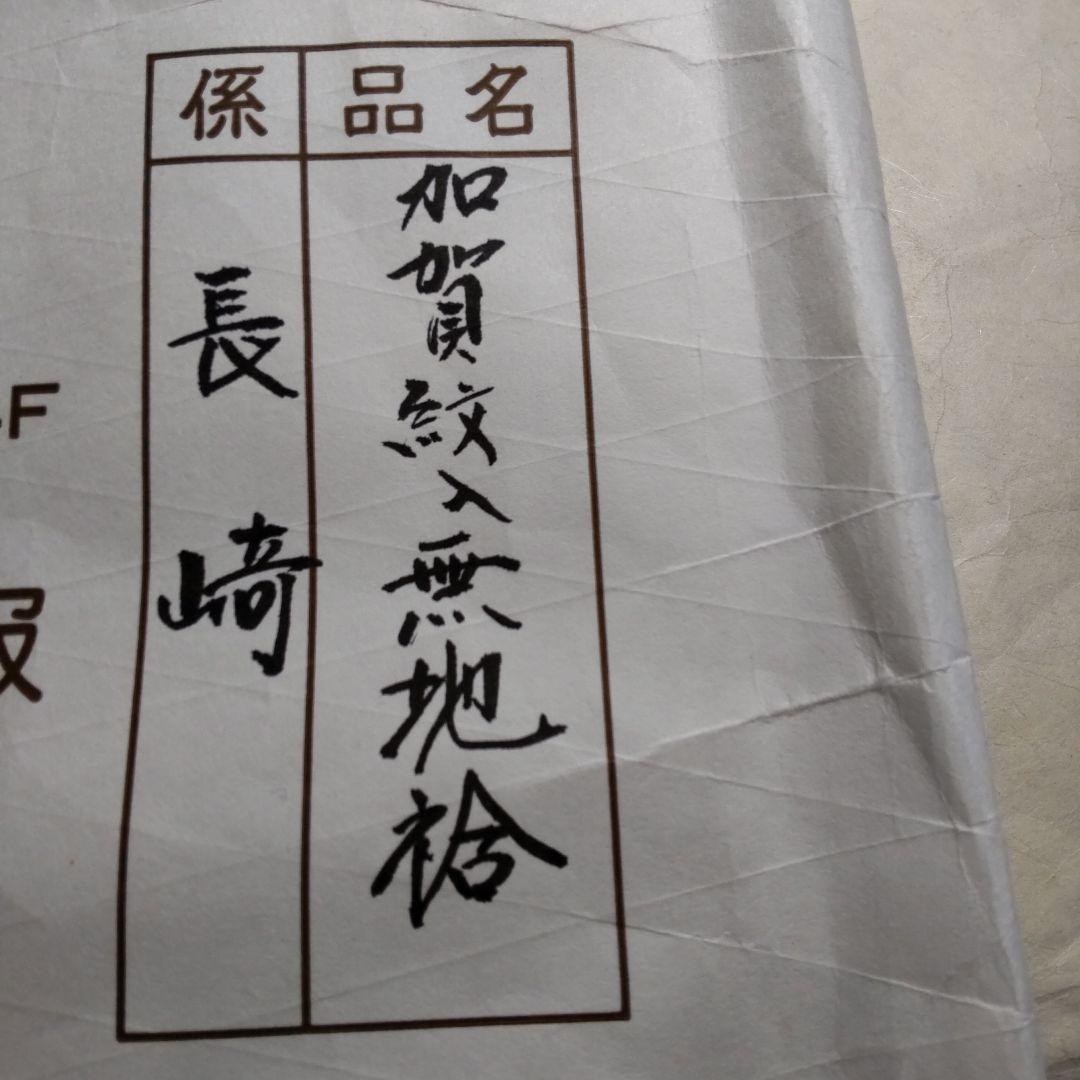 品名
加賀紋入無地袷
係
長崎
F
服